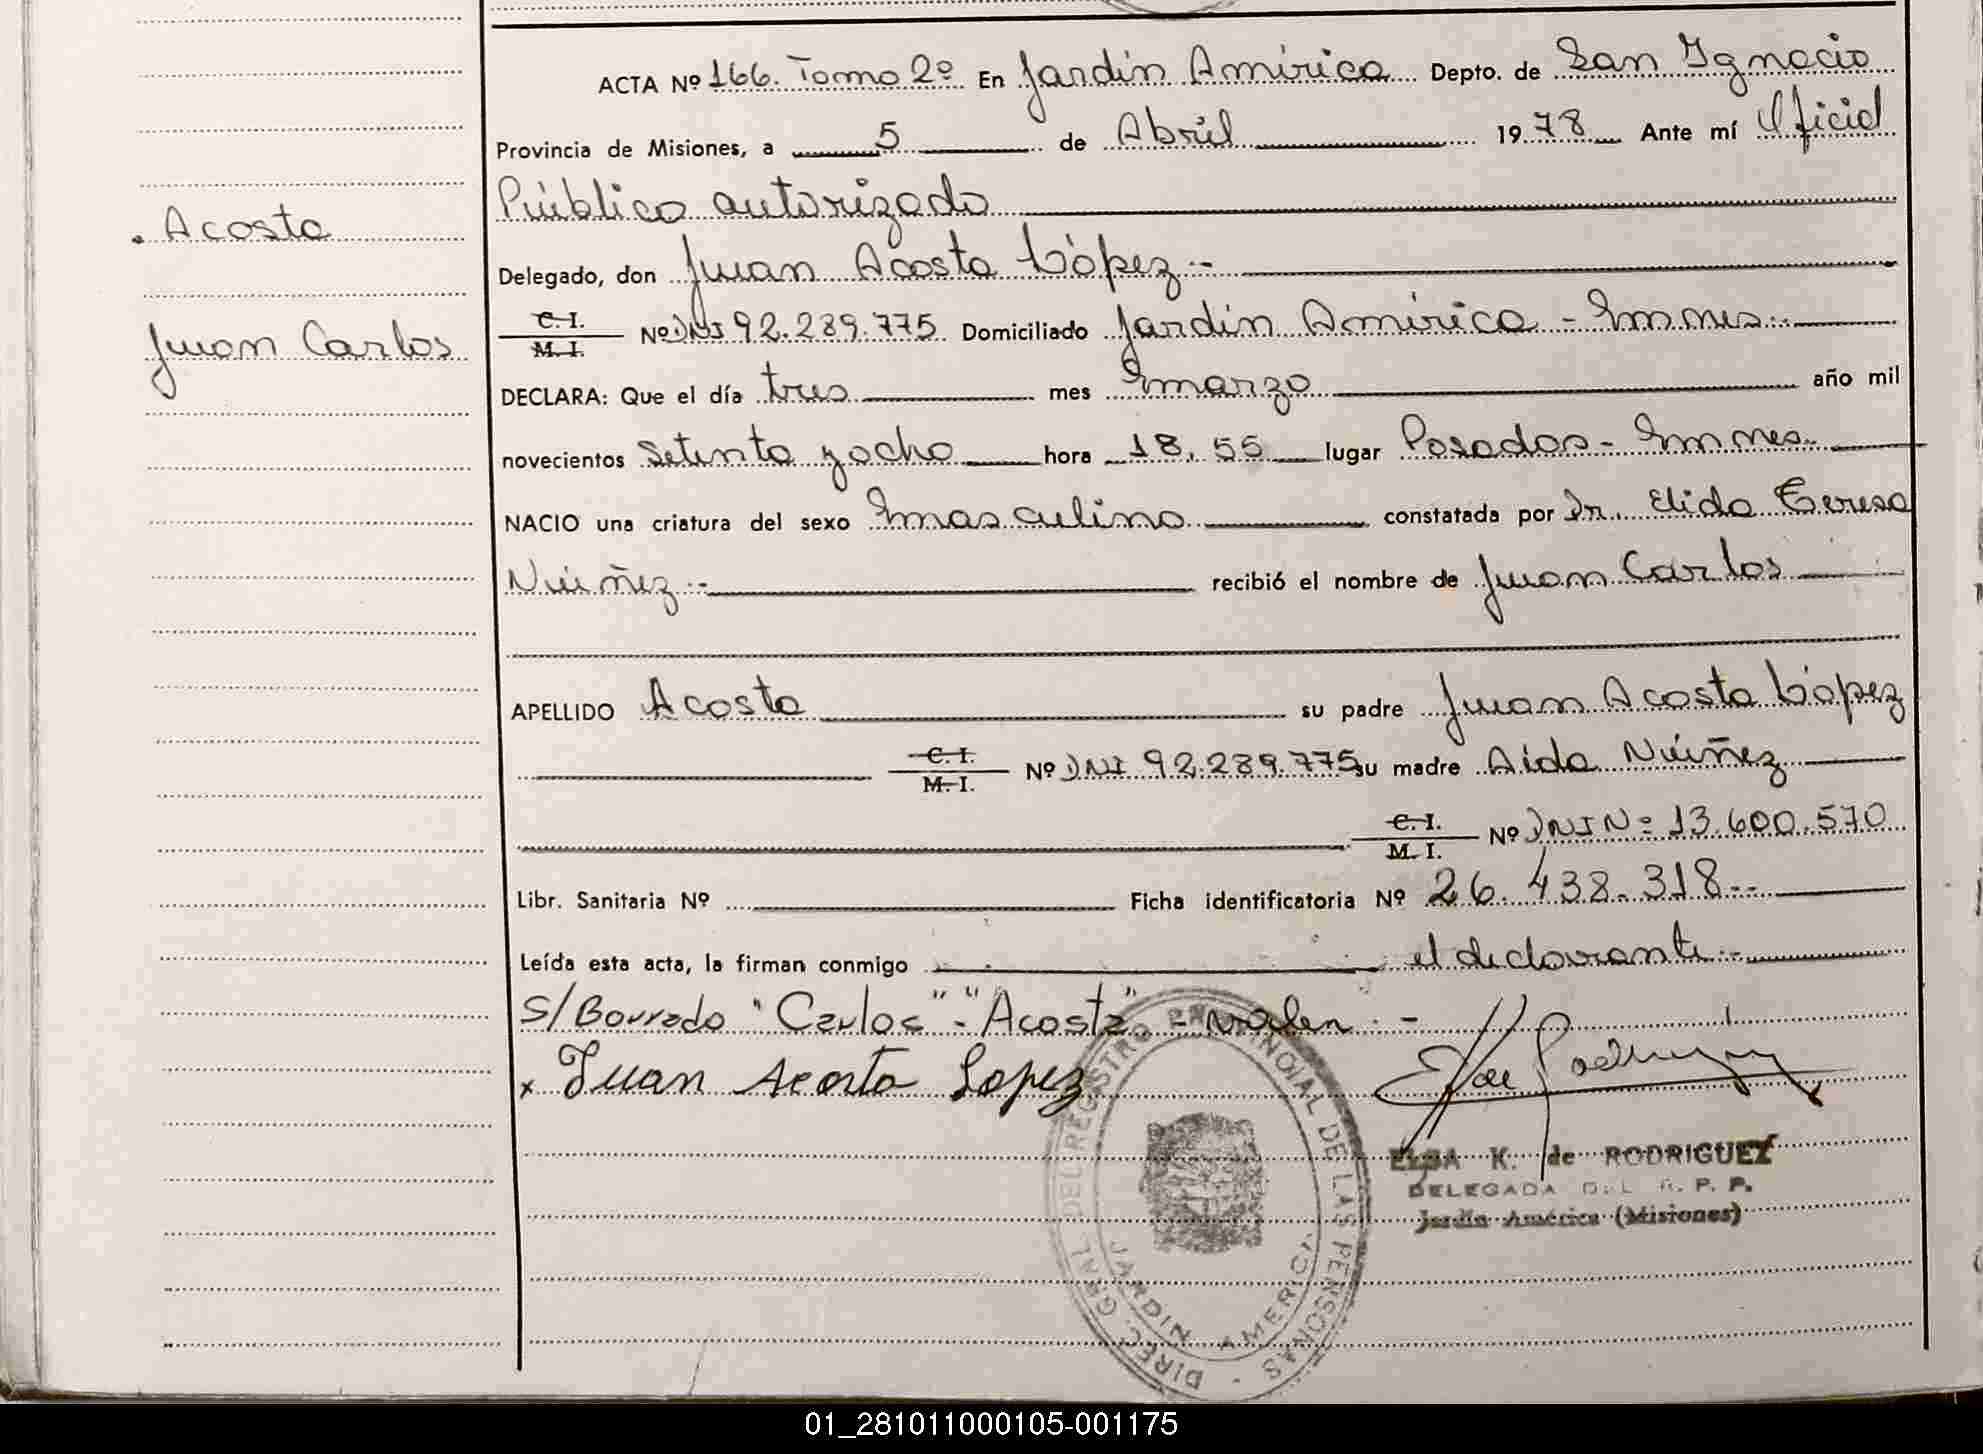 ACTA Nº 166. Tomo 2º En Jardín América Depto. de San Ignacio
Provincia de Misiones, a 5 de Abril 1978 Ante mí Oficial
Público autorizado
Acosta
Delegado, don Juan Acosta López.-
C. I. M. I. Nº DNI 92.289.775 Domiciliado Jardín América - Mnes.-
Juan Carlos
DECLARA: Que el día tres mes marzo año mil
novecientos setenta y ocho hora 18,55 lugar Posadas - Mnes.-
NACIO una criatura del sexo masculino constatada por Dr. Elida Teresa
Núñez.- recibió el nombre de Juan Carlos
APELLIDO Acosta su padre Juan Acosta López
C. I. M. I. Nº DNI 92.289.775 su madre Aida Núñez
C. I. M. I. Nº DNI Nº 13.600.570
Libr. Sanitaria Nº Ficha identificatoria Nº 26.438.318.-
Leída esta acta, la firman conmigo el declarante.-
S/Borrado "Carlos" - "Acosta" - valen. -
x Juan Acosta Lopez
ELSA K. de RODRIGUEZ
DELEGADA DEL R. P. P.
Jardín América (Misiones)
DIREC. GRAL. DEL REGISTRO PROVINCIAL DE LAS PERSONAS -
JARDIN AMERICA
01_281011000105-001175